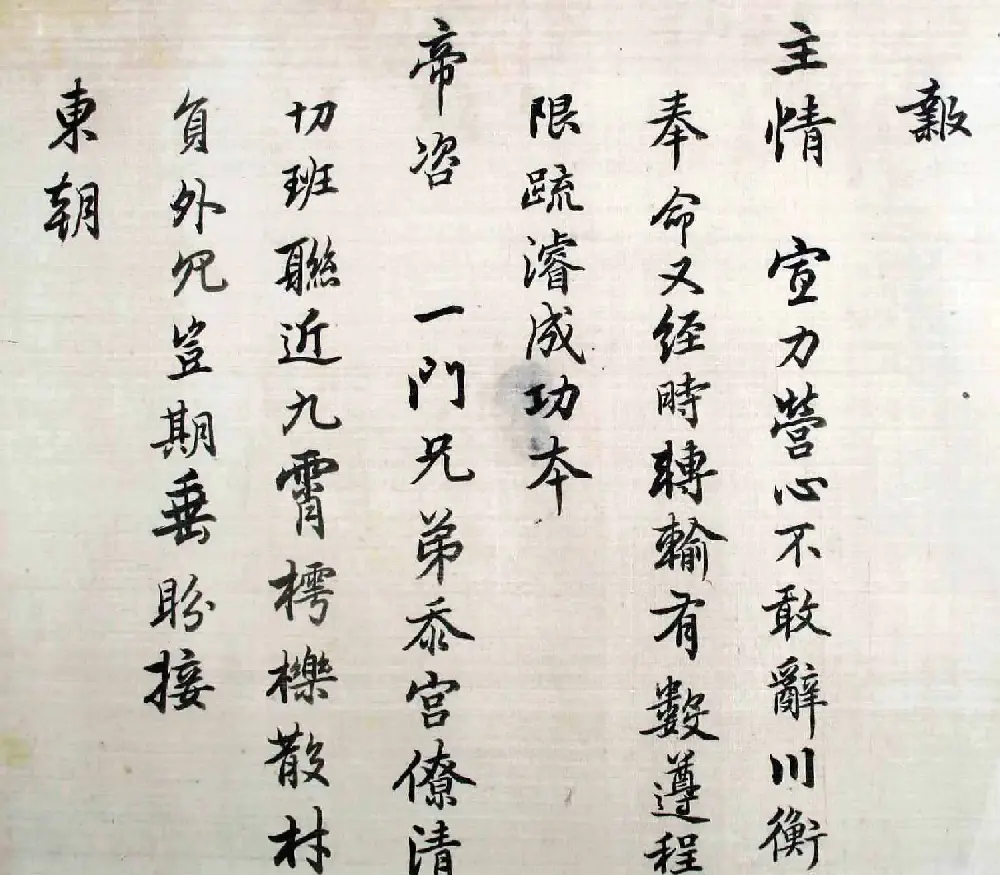 報
主情 宣力營心不敢辭川衡
奉命又經時轉輸有數遵程
限疏濬成功本
帝咨 一門兄弟忝宮僚清
切班聯近九霄樗櫟散材
員外豈期垂盼接
東朝